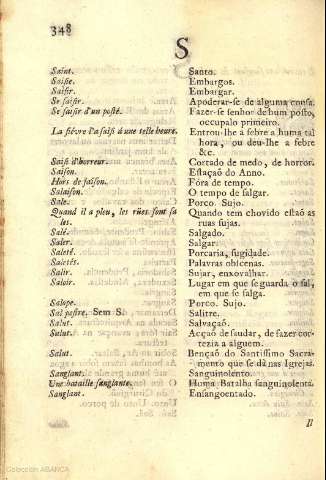 348
S
Saint. Santo.
Saisie. Embargos.
Saisir. Embargar.
Se saisir. Apoderar-se de alguma cousa.
Se saisir d'un posté. Fazer-se senhor de hum posto,
occupalo primeiro.
La fiévre l'a saisi á une telle heure. Entrou-lhe a febre a huma tal
hora, ou deu-lhe a febre
&c.
Saisi d'horreur. Cortado de medo, de horror.
Saison. Estaçaõ do Anno.
Hors de saison. Fóra de tempo.
Salaison. O tempo de salgar.
Sale. Porco. Sujo.
Quand il a pleu, les rües sont sa Quando tem chovido estaõ as
les. ruas sujas.
Salé. Salgado.
Saler. Salgar.
Saleté. Porcaria, sugidade.
Saletés. Palavras obscenas.
Salir. Sujar, enxovalhar.
Saloir. Lugar em que se guarda o sal,
em que se salga.
Salope. Porco. Sujo.
Sal pastre. Sem S. Salitre.
Salut. Salvaçaõ.
Salut. Acçaõ de saudar, de fazer cor-
tezia a alguem.
Salut. Bençaõ do Santissimo Sacra-
mento que se dá nas Igrejas.
Sanglant. Sanguinolento.
Une bataille sanglante. Huma Batalha sanguinolenta.
Sanglant. Ensangoentado.
II
Colección ABANCA